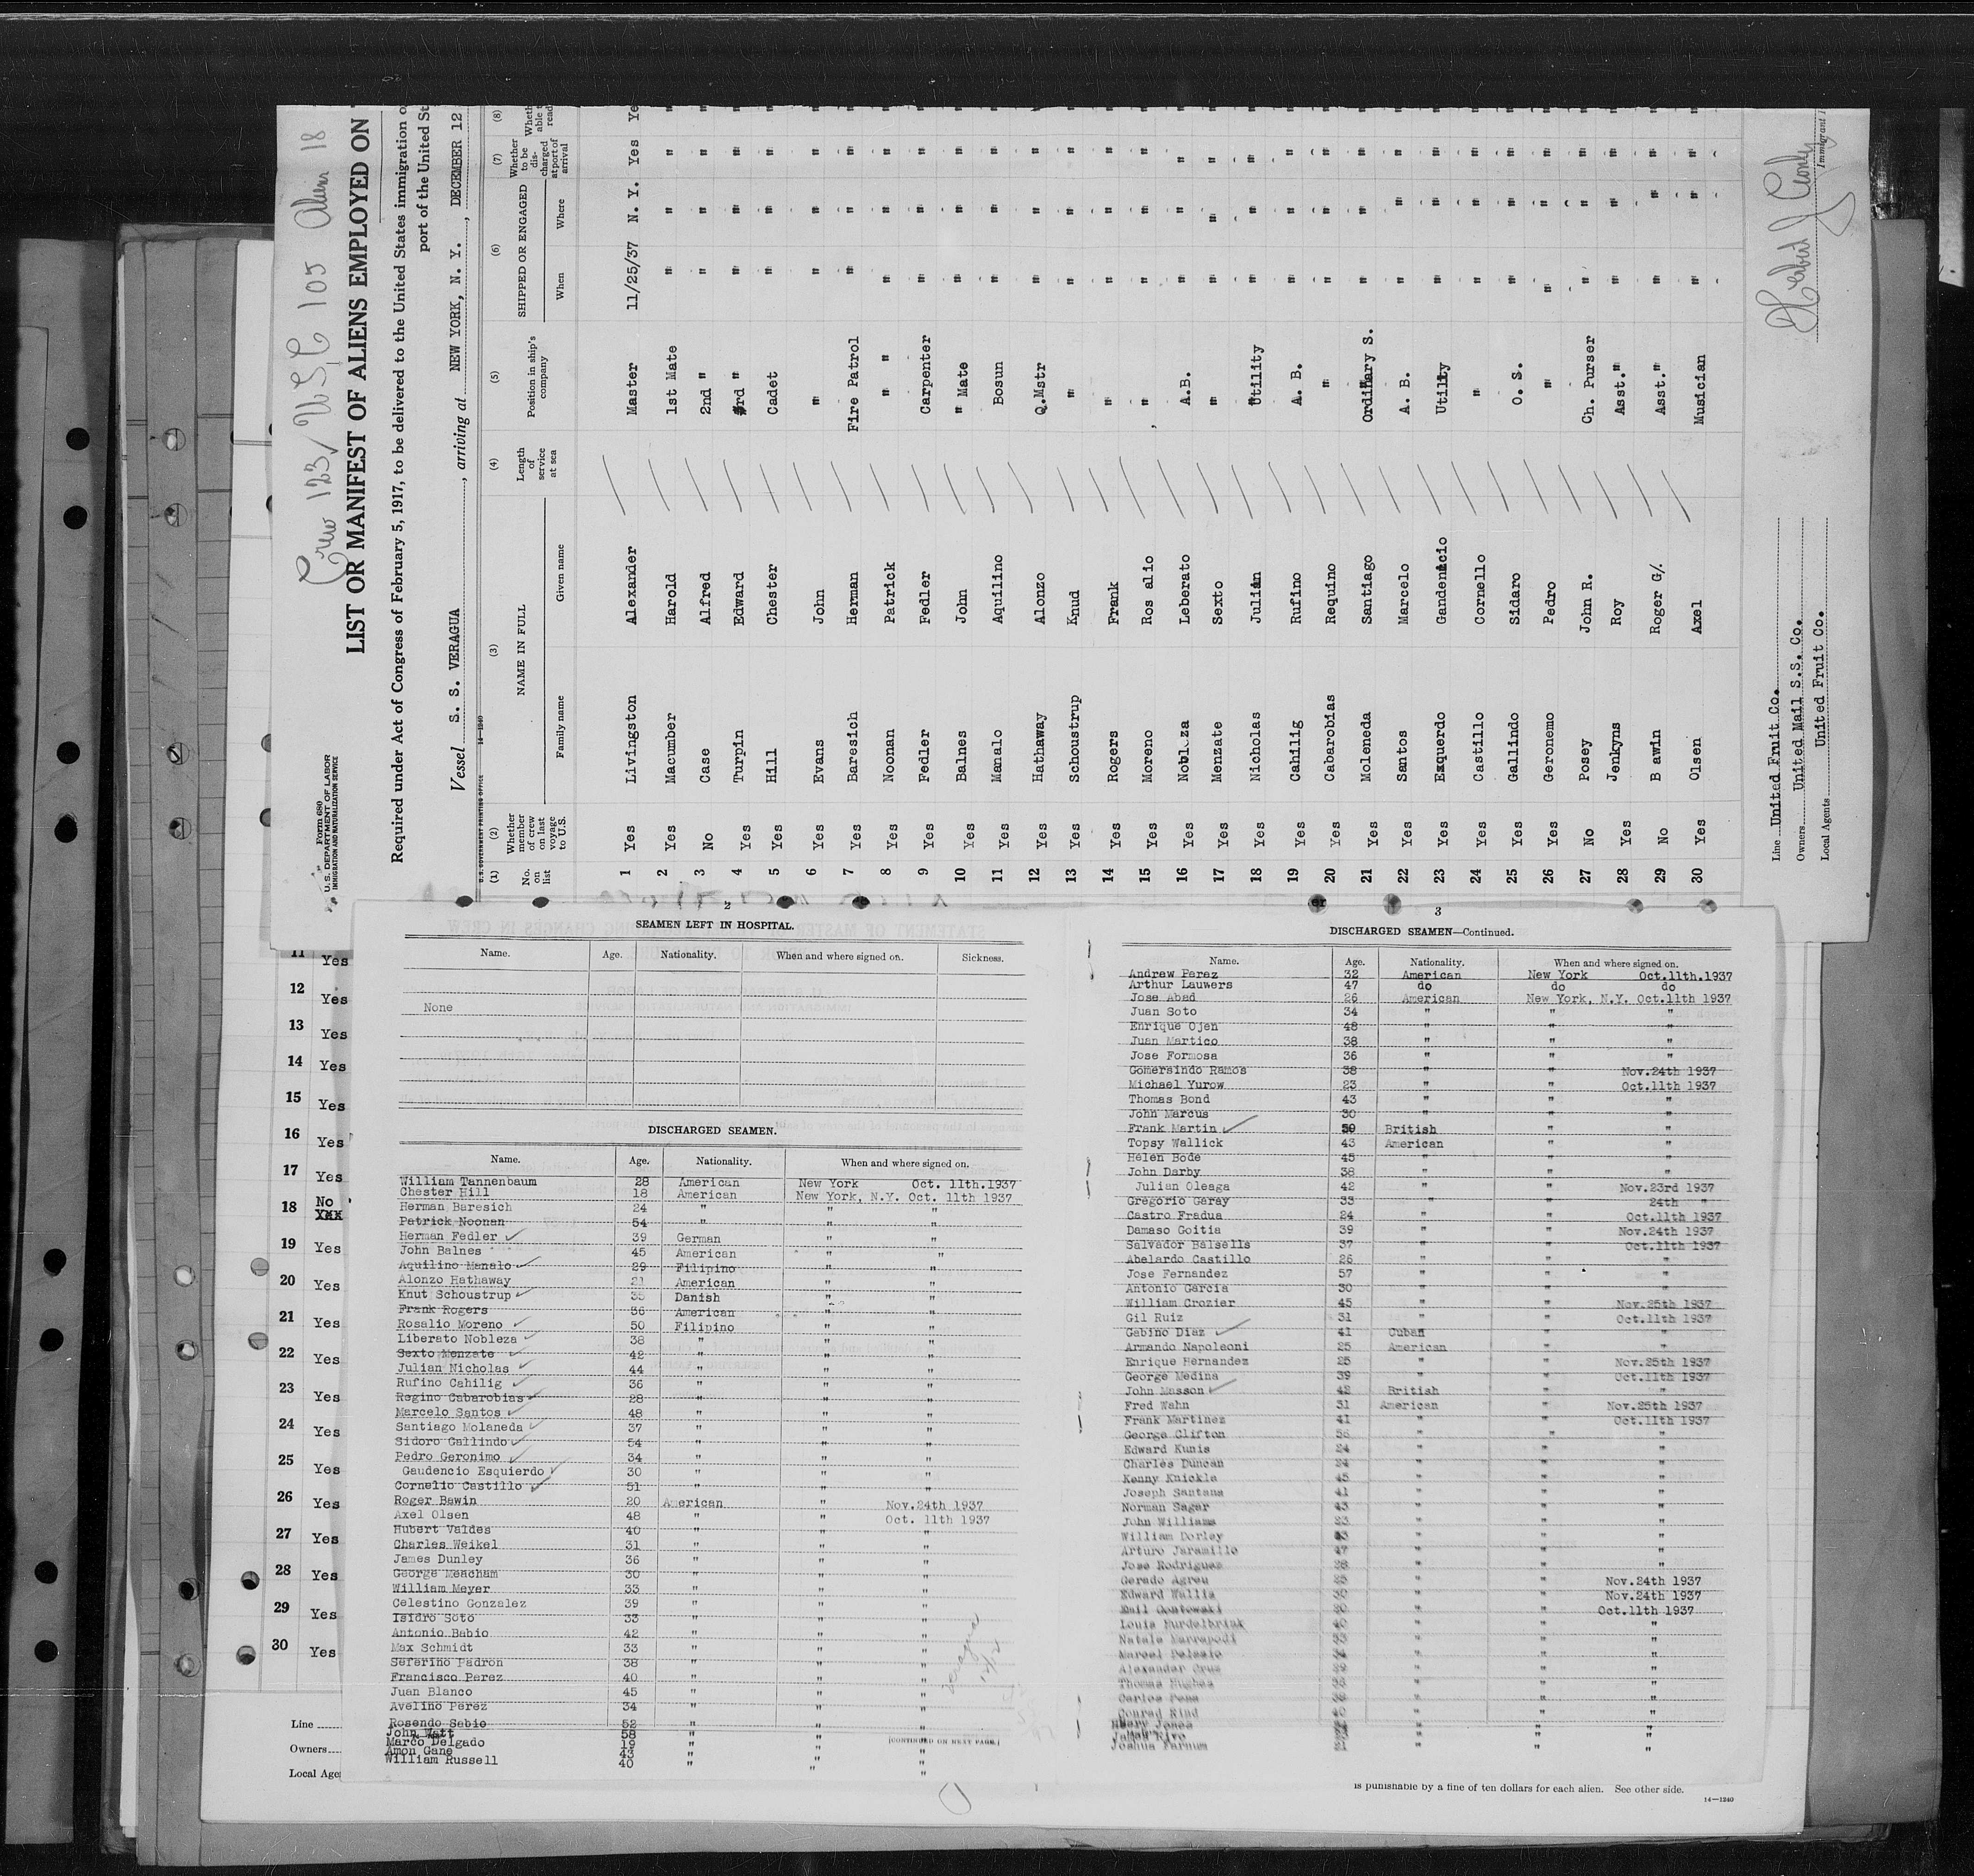 Crew 123 / U.S.C 105 Alien 18
Form 680
U. S. DEPARTMENT OF LABOR
IMMIGRATION AND NATURALIZATION SERVICE
LIST OR MANIFEST OF ALIENS EMPLOYED ON
Required under Act of Congress of February 5, 1917, to be delivered to the United States immigration
port of the United St
Vessel S. S. VERAGUA, arriving at NEW YORK, N. Y., DECEMBER 12
U.S. GOVERNMENT PRINTING OFFICE 14—1240
(1) (2) (3) (4) (5) (6) (7) (8)
No. on list Whether member of crew on last voyage to U.S. NAME IN FULL Family name Given name Length of service at sea Position in ship's company SHIPPED OR ENGAGED When Where Whether to be dis-charged at port of arrival
1 Yes Livingston Alexander Master 11/25/37 N. Y. Yes Ye
2 Yes Macumber Harold 1st Mate " " " "
3 No Case Alfred 2nd " " " " "
4 Yes Turpin Edward 3rd " " " " "
5 Yes Hill Chester Cadet " " " "
6 Yes Evans John " " " " "
7 Yes Baresich Herman Fire Patrol " " " "
8 Yes Noonan Patrick " " " " " "
9 Yes Fedler Fedler Carpenter " " " "
10 Yes Balnes John " Mate " " " "
11 Yes Manalo Aquilino Bosun " " " "
12 Yes Hathaway Alonzo Q.Mstr " " " "
13 Yes Schoustrup Knud " " " " "
14 Yes Rogers Frank " " " " "
15 Yes Moreno Ros alio " " " " "
16 Yes Nobleza Leberato A.B. " " " "
17 Yes Menzate Sexto " " " " "
18 Yes Nicholas Julian Utility " " " "
19 Yes Cahilig Rufino A. B. " " " "
20 Yes Cabarobias Requino " " " " "
21 Yes Moleneda Santiago Ordinary S. " " " "
22 Yes Santos Marcelo A. B. " " " "
23 Yes Exquerdo Gandencio Utility " " " "
24 Yes Castillo Cornello " " " " "
25 Yes Gallindo Sidaro O. S. " " " "
26 Yes Geronemo Pedro " " " " "
27 No Posey John R. Ch. Purser " " " "
28 Yes Jenkyns Roy Asst." " " " "
29 No B awin Roger G/. Asst." " " " "
30 Yes Olsen Axel Musician " " " "
Line United Fruit Co.
Owners United Mail S.S. Co.
Local Agents United Fruit Co.
Immigrant I
11 Yes
12 Yes
13 Yes
14 Yes
15 Yes
16 Yes
17 Yes
18 No Yes
19 Yes
20 Yes
21 Yes
22 Yes
23 Yes
24 Yes
25 Yes
26 Yes
27 Yes
28 Yes
29 Yes
30 Yes
Line
Owners
Local Age
2
SEAMEN LEFT IN HOSPITAL.
Name. Age. Nationality. When and where signed on. Sickness.
None
DISCHARGED SEAMEN.
Name. Age. Nationality. When and where signed on.
William Tannenbaum 28 American New York Oct. 11th.1937
Chester Hill 18 American New York, N.Y. Oct. 11th 1937
Herman Baresich 24 " " "
Patrick Noonan 54 " " "
Herman Fedler 39 German " "
John Balnes 45 American " "
Aquilino Manalo 29 Filipino " "
Alonzo Hathaway 21 American " "
Knut Schoustrup 35 Danish " "
Frank Rogers 36 American " "
Rosalio Moreno 50 Filipino " "
Liberato Nobleza 38 " " "
Sexto Menzate 42 " " "
Julian Nicholas 44 " " "
Rufino Cahilig 36 " " "
Regino Cabarobias 28 " " "
Marcelo Santos 48 " " "
Santiago Molaneda 37 " " "
Sidoro Gallindo 54 " " "
Pedro Geronimo 34 " " "
Gaudencio Esquierdo 30 " " "
Cornelio Castillo 51 " " "
Roger Bawin 20 American " Nov.24th 1937
Axel Olsen 48 " " Oct. 11th 1937
Hubert Valdes 40 " " "
Charles Weikel 31 " " "
James Dunley 36 " " "
George Meacham 30 " " "
William Meyer 33 " " "
Celestino Gonzalez 39 " " "
Isidro Soto 33 " " "
Antonio Babio 42 " " "
Max Schmidt 33 " " "
Seferino Padron 38 " " "
Francisco Perez 40 " " "
Juan Blanco 45 " " "
Avelino Perez 34 " " "
Rosendo Sabio 52 " " "
John Watt 58 " " "
Marco Delgado 19 " " "
Amon Gane 43 " " "
William Russell 40 " " "
[CONTINUED ON NEXT PAGE.]
Veragua
12/12
3
DISCHARGED SEAMEN—Continued.
Name. Age. Nationality. When and where signed on.
Andrew Perez 32 American New York Oct.11th.1937
Arthur Lauwers 47 do do do
Jose Abad 26 American New York, N.Y. Oct.11th 1937
Juan Soto 34 " " "
Enrique Ojen 48 " " "
Juan Martico 38 " " "
Jose Formosa 36 " " "
Gomersindo Ramos 38 " " Nov.24th 1937
Michael Yurow 23 " " Oct.11th 1937
Thomas Bond 43 " " "
John Marcus 30 " " "
Frank Martin 50 British " "
Topsy Wallick 43 American " "
Helen Bode 45 " " "
John Darby 38 " " "
Julian Oleaga 42 " " Nov.23rd 1937
Gregorio Garay 33 " " 24th "
Castro Fradua 24 " " Oct.11th 1937
Damaso Goitia 39 " " Nov.24th 1937
Salvador Balsells 37 " " Oct.11th 1937
Abelardo Castillo 26 " " "
Jose Fernandez 57 " " "
Antonio Garcia 30 " " "
William Crozier 45 " " Nov.25th 1937
Gil Ruiz 31 " " Oct.11th 1937
Gabino Diaz 41 Cuban " "
Armando Napoleoni 25 American " "
Enrique Hernandez 25 " " Nov.25th 1937
George Medina 39 " " Oct.11th 1937
John Masson 42 British " "
Fred Wahn 31 American " Nov.25th 1937
Frank Martinez 41 " " Oct.11th 1937
George Clifton 56 " " "
Edward Kunis 24 " " "
Charles Duncan 24 " " "
Kenny Knickle 45 " " "
Joseph Santana 41 " " "
Norman Sagar 43 " " "
John Williams 23 " " "
William Dorley " " "
Arturo Jaramillo 47 " " "
Jose Rodriguez 28 " " "
Gerado Agreu 25 " " Nov.24th 1937
Edward Wallis 30 " " Nov.24th 1937
Emil " " Oct.11th 1937
Louis Hurdelbrink 40 " " "
Natale Marrapodi 33 " " "
Marcel " " "
Alexander Cruz " " "
Thomas Hughes " " "
Carlos Pena " " "
Conrad Rind 40 " " "
Henry Jones " " "
James Rivo " " "
Joshua Farnum 21 " " "
is punishable by a fine of ten dollars for each alien. See other side.
14—1240